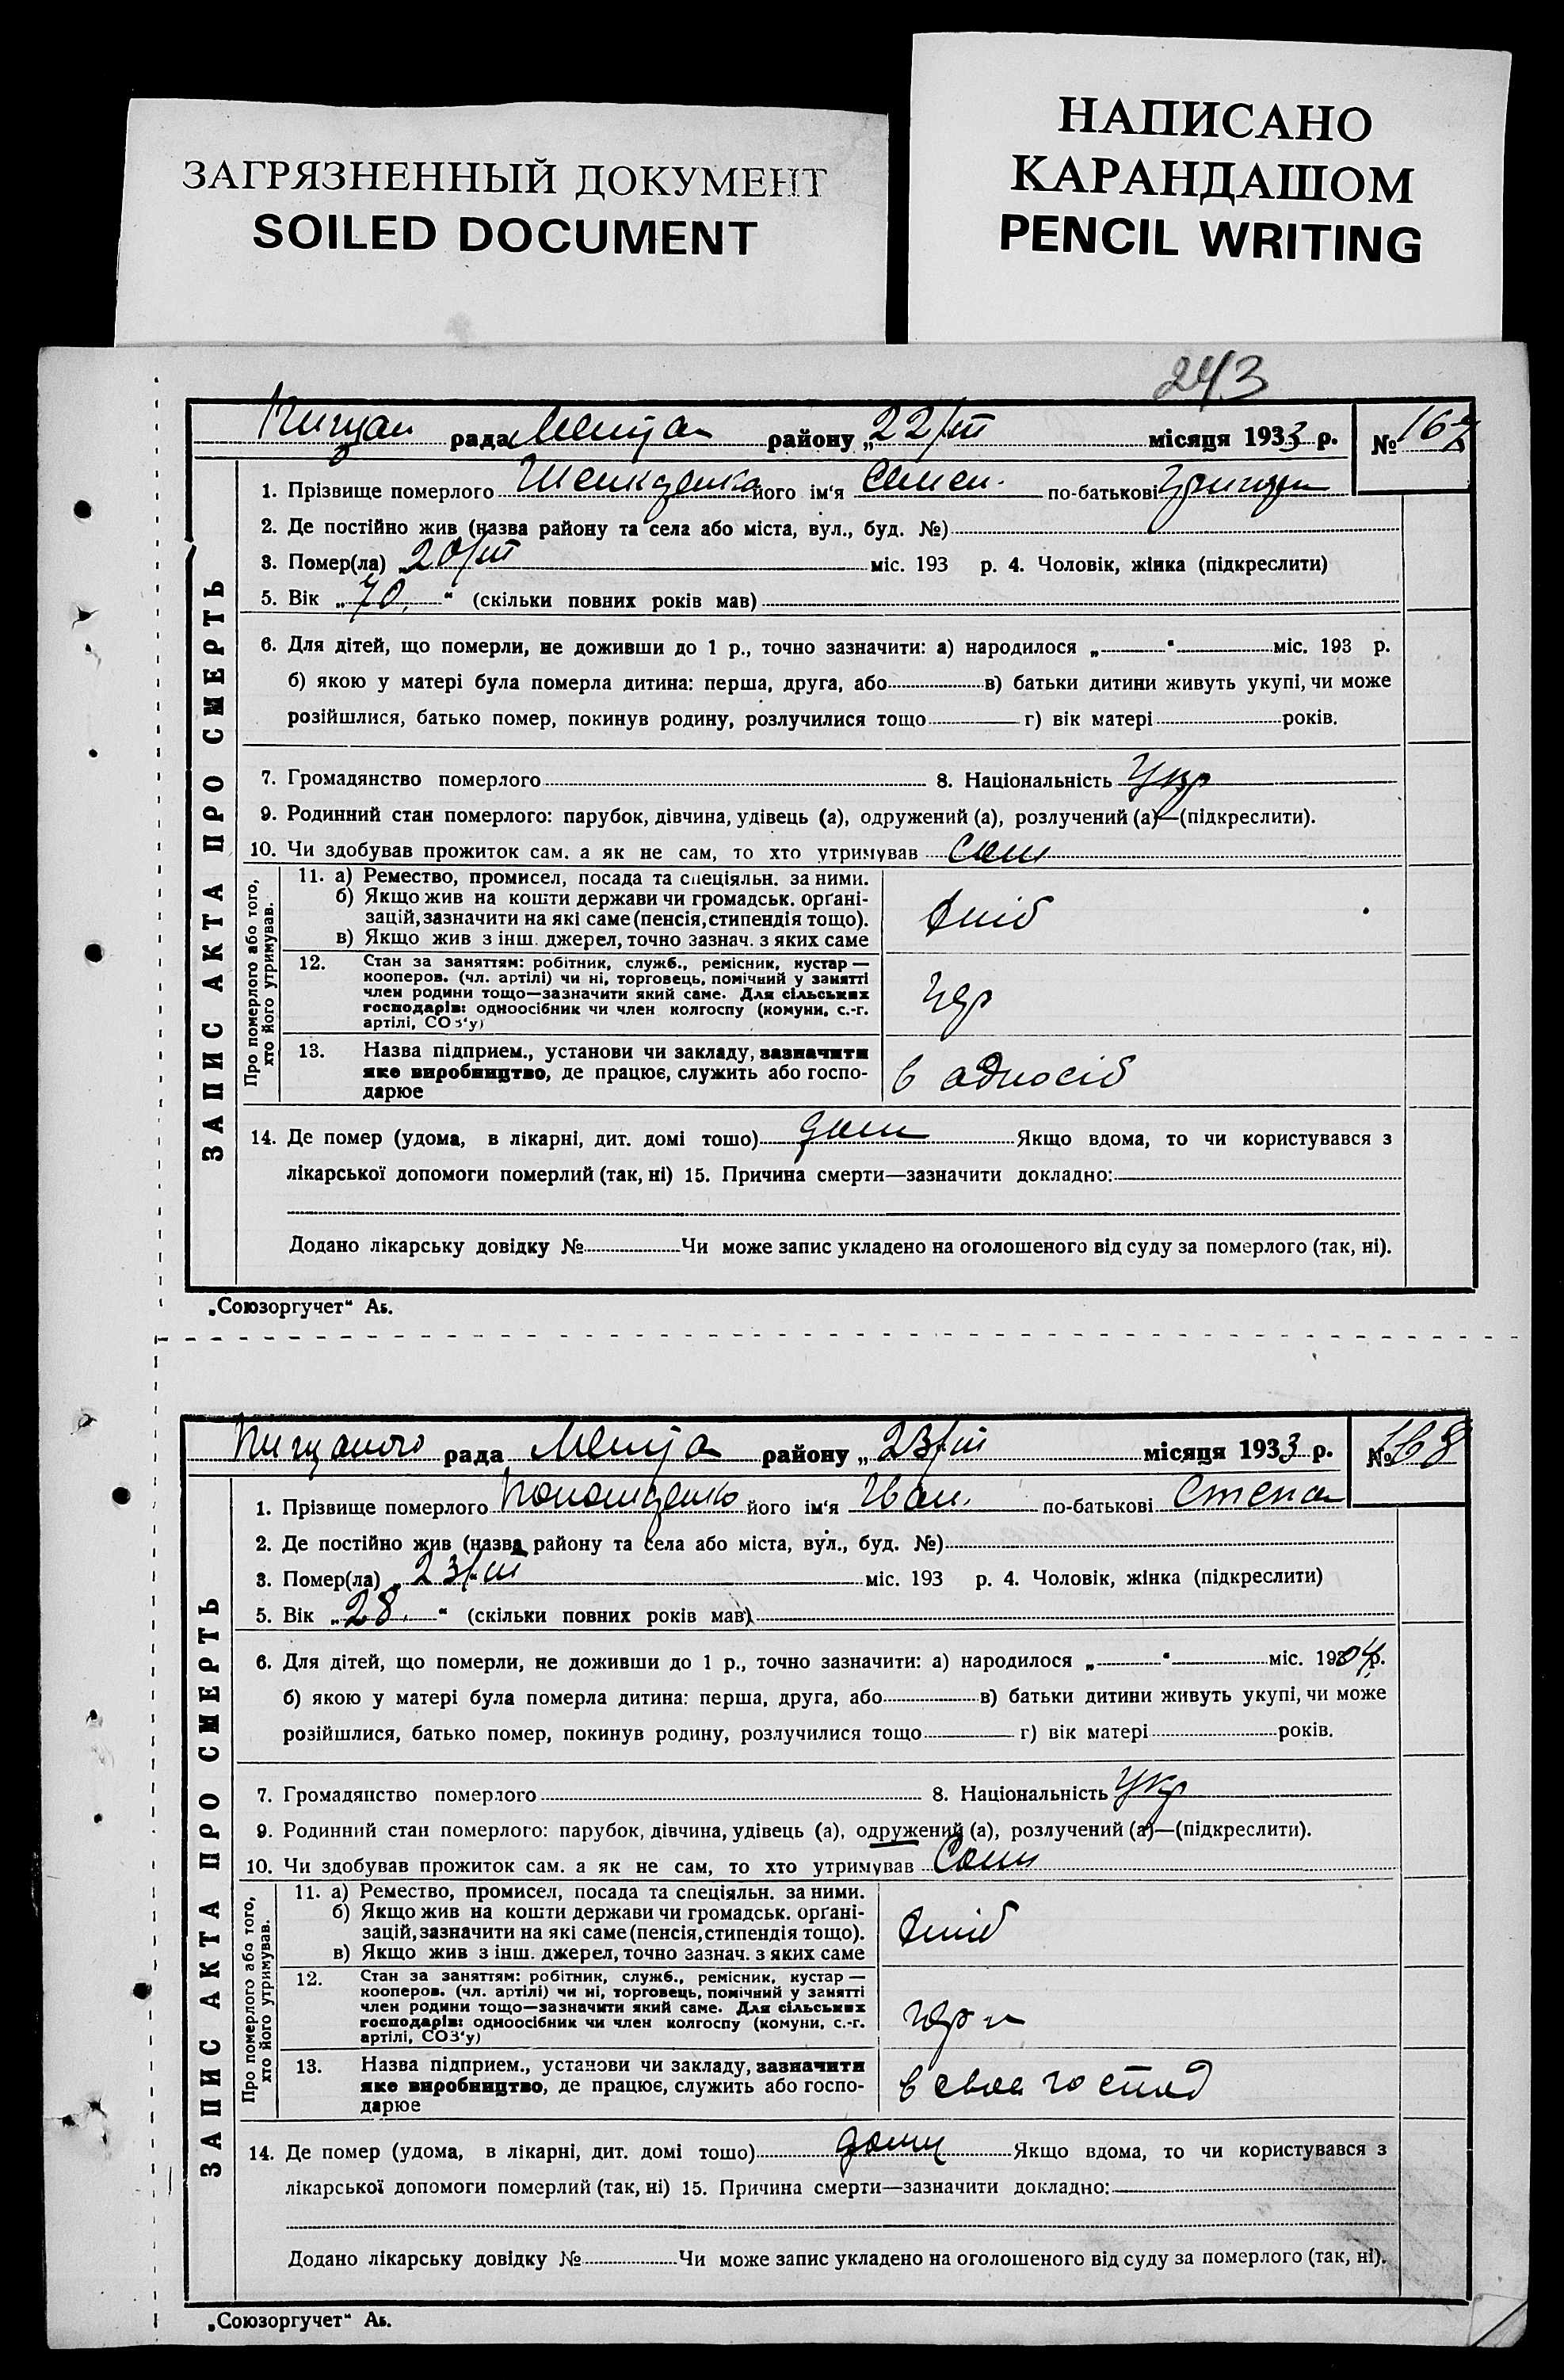 ЗАГРЯЗНЕННЫЙ ДОКУМЕНТ
SOILED DOCUMENT
НАПИСАНО
КАРАНДАШОМ
PENCIL WRITING
243
рада района „22/III місяця 1933 р. № 167
1. Прізвище померлого його ім'я Семен. по-батькові
2. Де постійно жив (назва району та села або міста, вул., буд. №)
3. Помер(ла) „20/III міс. 193 р. 4. Чоловік, жінка (підкреслити)
5. Вік „70." (скільки повних років мав)
6. Для дітей, що померли, не доживши до 1 р., точно зазначити: а) народилося „ " міс. 193 р.
б) якою у матері була померла дитина: перша, друга, або в) батьки дитини живуть укупі, чи може
розійшлися, батько помер, покинув родину, розлучилися тощо г) вік матері років.
7. Громадянство померлого 8. Національність Укр
9. Родинний стан померлого: парубок, дівчина, удівець (а), одружений (а), розлучений (а)—(підкреслити).
10. Чи здобував прожиток сам. а як не сам, то хто утримував Сам
Про померлого або того,
хто його утримував.
11. а) Ремество, промисел, посада та спеціяльн. за ними.
б) Якщо жив на кошти держави чи громадськ. орґані-
зацій, зазначити на які саме (пенсія, стипендія тощо).
в) Якщо жив з інш. джерел, точно зазнач. з яких саме
хліб
12. Стан за заняттям: робітник, служб., ремісник, кустар —
кооперов. (чл. артілі) чи ні, торговець, помічний у занятті
член родини тощо—зазначити який саме. Для сільських
господарів: одноосібник чи член колгоспу (комуни, с.-г.
артілі, СОЗ'у)
13. Назва підприєм., установи чи закладу, зазначити
яке виробництво, де працює, служить або госпо-
дарює
в односіб
14. Де помер (удома, в лікарні, дит. домі тошо) дом Якщо вдома, то чи користувався з
лікарської допомоги померлий (так, ні) 15. Причина смерти—зазначити докладно:
Додано лікарську довідку № Чи може запис укладено на оголошеного від суду за померлого (так, ні).
ЗАПИС АКТА ПРО СМЕРТЬ
„Союзоргучет" Аб.
рада району „23/III місяця 1933 р. № 168
1. Прізвище померлого його ім'я Іван. по-батькові Степа
2. Де постійно жив (назва району та села або міста, вул., буд. №)
3. Помер(ла) „23/III міс. 193 р. 4. Чоловік, жінка (підкреслити)
5. Вік „28." (скільки повних років мав)
6. Для дітей, що померли, не доживши до 1 р., точно зазначити: а) народилося „ " міс. 1904 р.
б) якою у матері була померла дитина: перша, друга, або в) батьки дитини живуть укупі, чи може
розійшлися, батько помер, покинув родину, розлучилися тощо г) вік матері років.
7. Громадянство померлого 8. Національність Укр
9. Родинний стан померлого: парубок, дівчина, удівець (а), одружений (а), розлучений (а)—(підкреслити).
10. Чи здобував прожиток сам. а як не сам, то хто утримував Сам
Про померлого або того,
хто його утримував.
11. а) Ремество, промисел, посада та спеціяльн. за ними.
б) Якщо жив на кошти держави чи громадськ. орґані-
зацій, зазначити на які саме (пенсія, стипендія тощо).
в) Якщо жив з інш. джерел, точно зазнач. з яких саме
хліб
12. Стан за заняттям: робітник, служб., ремісник, кустар —
кооперов. (чл. артілі) чи ні, торговець, помічний у занятті
член родини тощо—зазначити який саме. Для сільських
господарів: одноосібник чи член колгоспу (комуни, с.-г.
артілі, СОЗ'у)
13. Назва підприєм., установи чи закладу, зазначити
яке виробництво, де працює, служить або госпо-
дарює
в своє господ
14. Де помер (удома, в лікарні, дит. домі тошо) дому Якщо вдома, то чи користувався з
лікарської допомоги померлий (так, ні) 15. Причина смерти—зазначити докладно:
Додано лікарську довідку № Чи може запис укладено на оголошеного від суду за померлого (так, ні).
ЗАПИС АКТА ПРО СМЕРТЬ
„Союзоргучет" Аб.